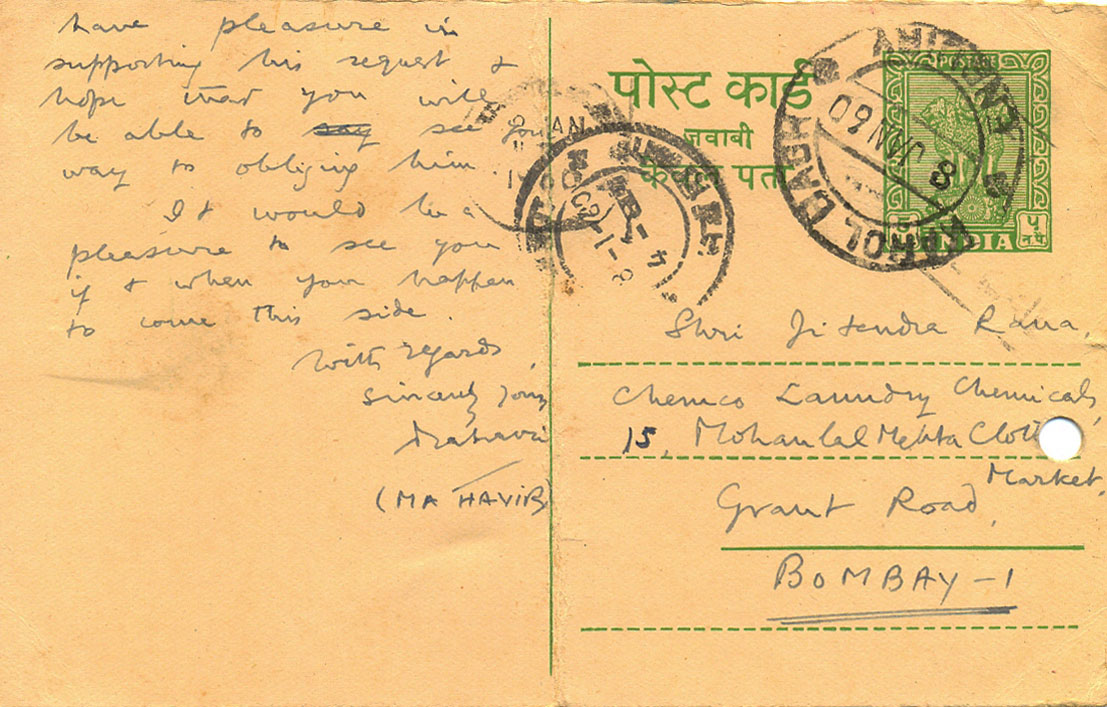 have pleasure in
supporting his request &
hope that you will
be able to say see your
way to obliging him.
It would be a
pleasure to see you
if & when you happen
to come this side.
With regards,
Sincerely yours
(MAHAVIR)
पोस्ट कार्ड
जवाबी
केवल पता
POSTAGE
INDIA
KAROL BAGH
8 JAN 60
Shri Jitendra Rana,
Chemco Laundry Chemicals,
15, Mohanlal Mehta Cloth
Market,
Grant Road,
BOMBAY-1